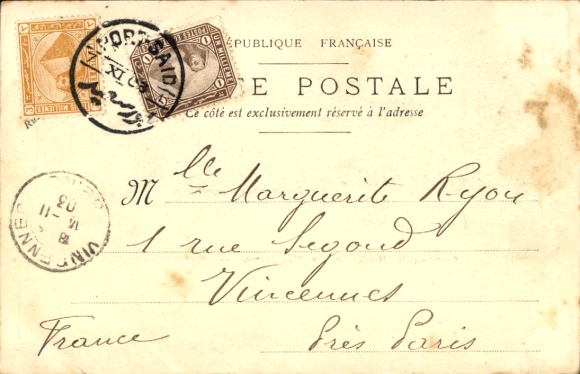 RÉPUBLIQUE FRANÇAISE
TE POSTALE
Ce côté est exclusivement réservé à l'adresse
PORT-SAID
XI 03
UN MILLIEME
MILLIEMES
Mlle Marguerite Ryou
1 rue Segond
Vincennes
Près Paris
France
VINCENNES
11
03